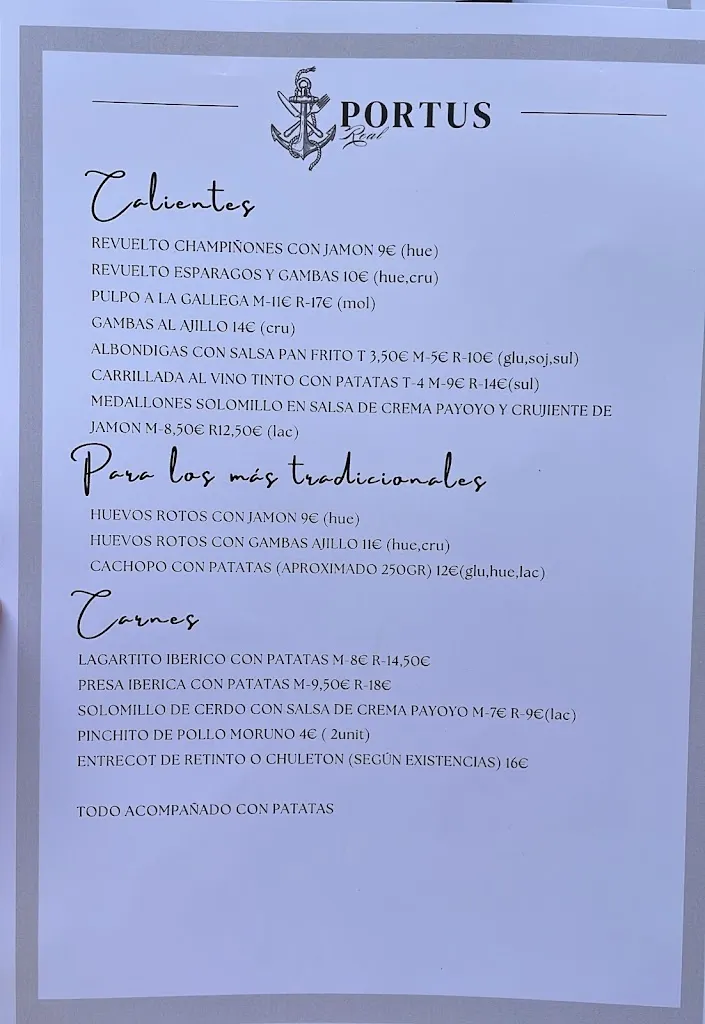 PORTUS
Real
Calientes
REVUELTO CHAMPIÑONES CON JAMON 9€ (hue)
REVUELTO ESPARAGOS Y GAMBAS 10€ (hue,cru)
PULPO A LA GALLEGA M-11€ R-17€ (mol)
GAMBAS AL AJILLO 14€ (cru)
ALBONDIGAS CON SALSA PAN FRITO T 3,50€ M-5€ R-10€ (glu,soj,sul)
CARRILLADA AL VINO TINTO CON PATATAS T-4 M-9€ R-14€(sul)
MEDALLONES SOLOMILLO EN SALSA DE CREMA PAYOYO Y CRUJIENTE DE
JAMON M-8,50€ R12,50€ (lac)
Para los más tradicionales
HUEVOS ROTOS CON JAMON 9€ (hue)
HUEVOS ROTOS CON GAMBAS AJILLO 11€ (hue,cru)
CACHOPO CON PATATAS (APROXIMADO 250GR) 12€(glu,hue,lac)
Carnes
LAGARTITO IBERICO CON PATATAS M-8€ R-14,50€
PRESA IBERICA CON PATATAS M-9,50€ R-18€
SOLOMILLO DE CERDO CON SALSA DE CREMA PAYOYO M-7€ R-9€(lac)
PINCHITO DE POLLO MORUNO 4€ ( 2unit)
ENTRECOT DE RETINTO O CHULETON (SEGÚN EXISTENCIAS) 16€
TODO ACOMPAÑADO CON PATATAS